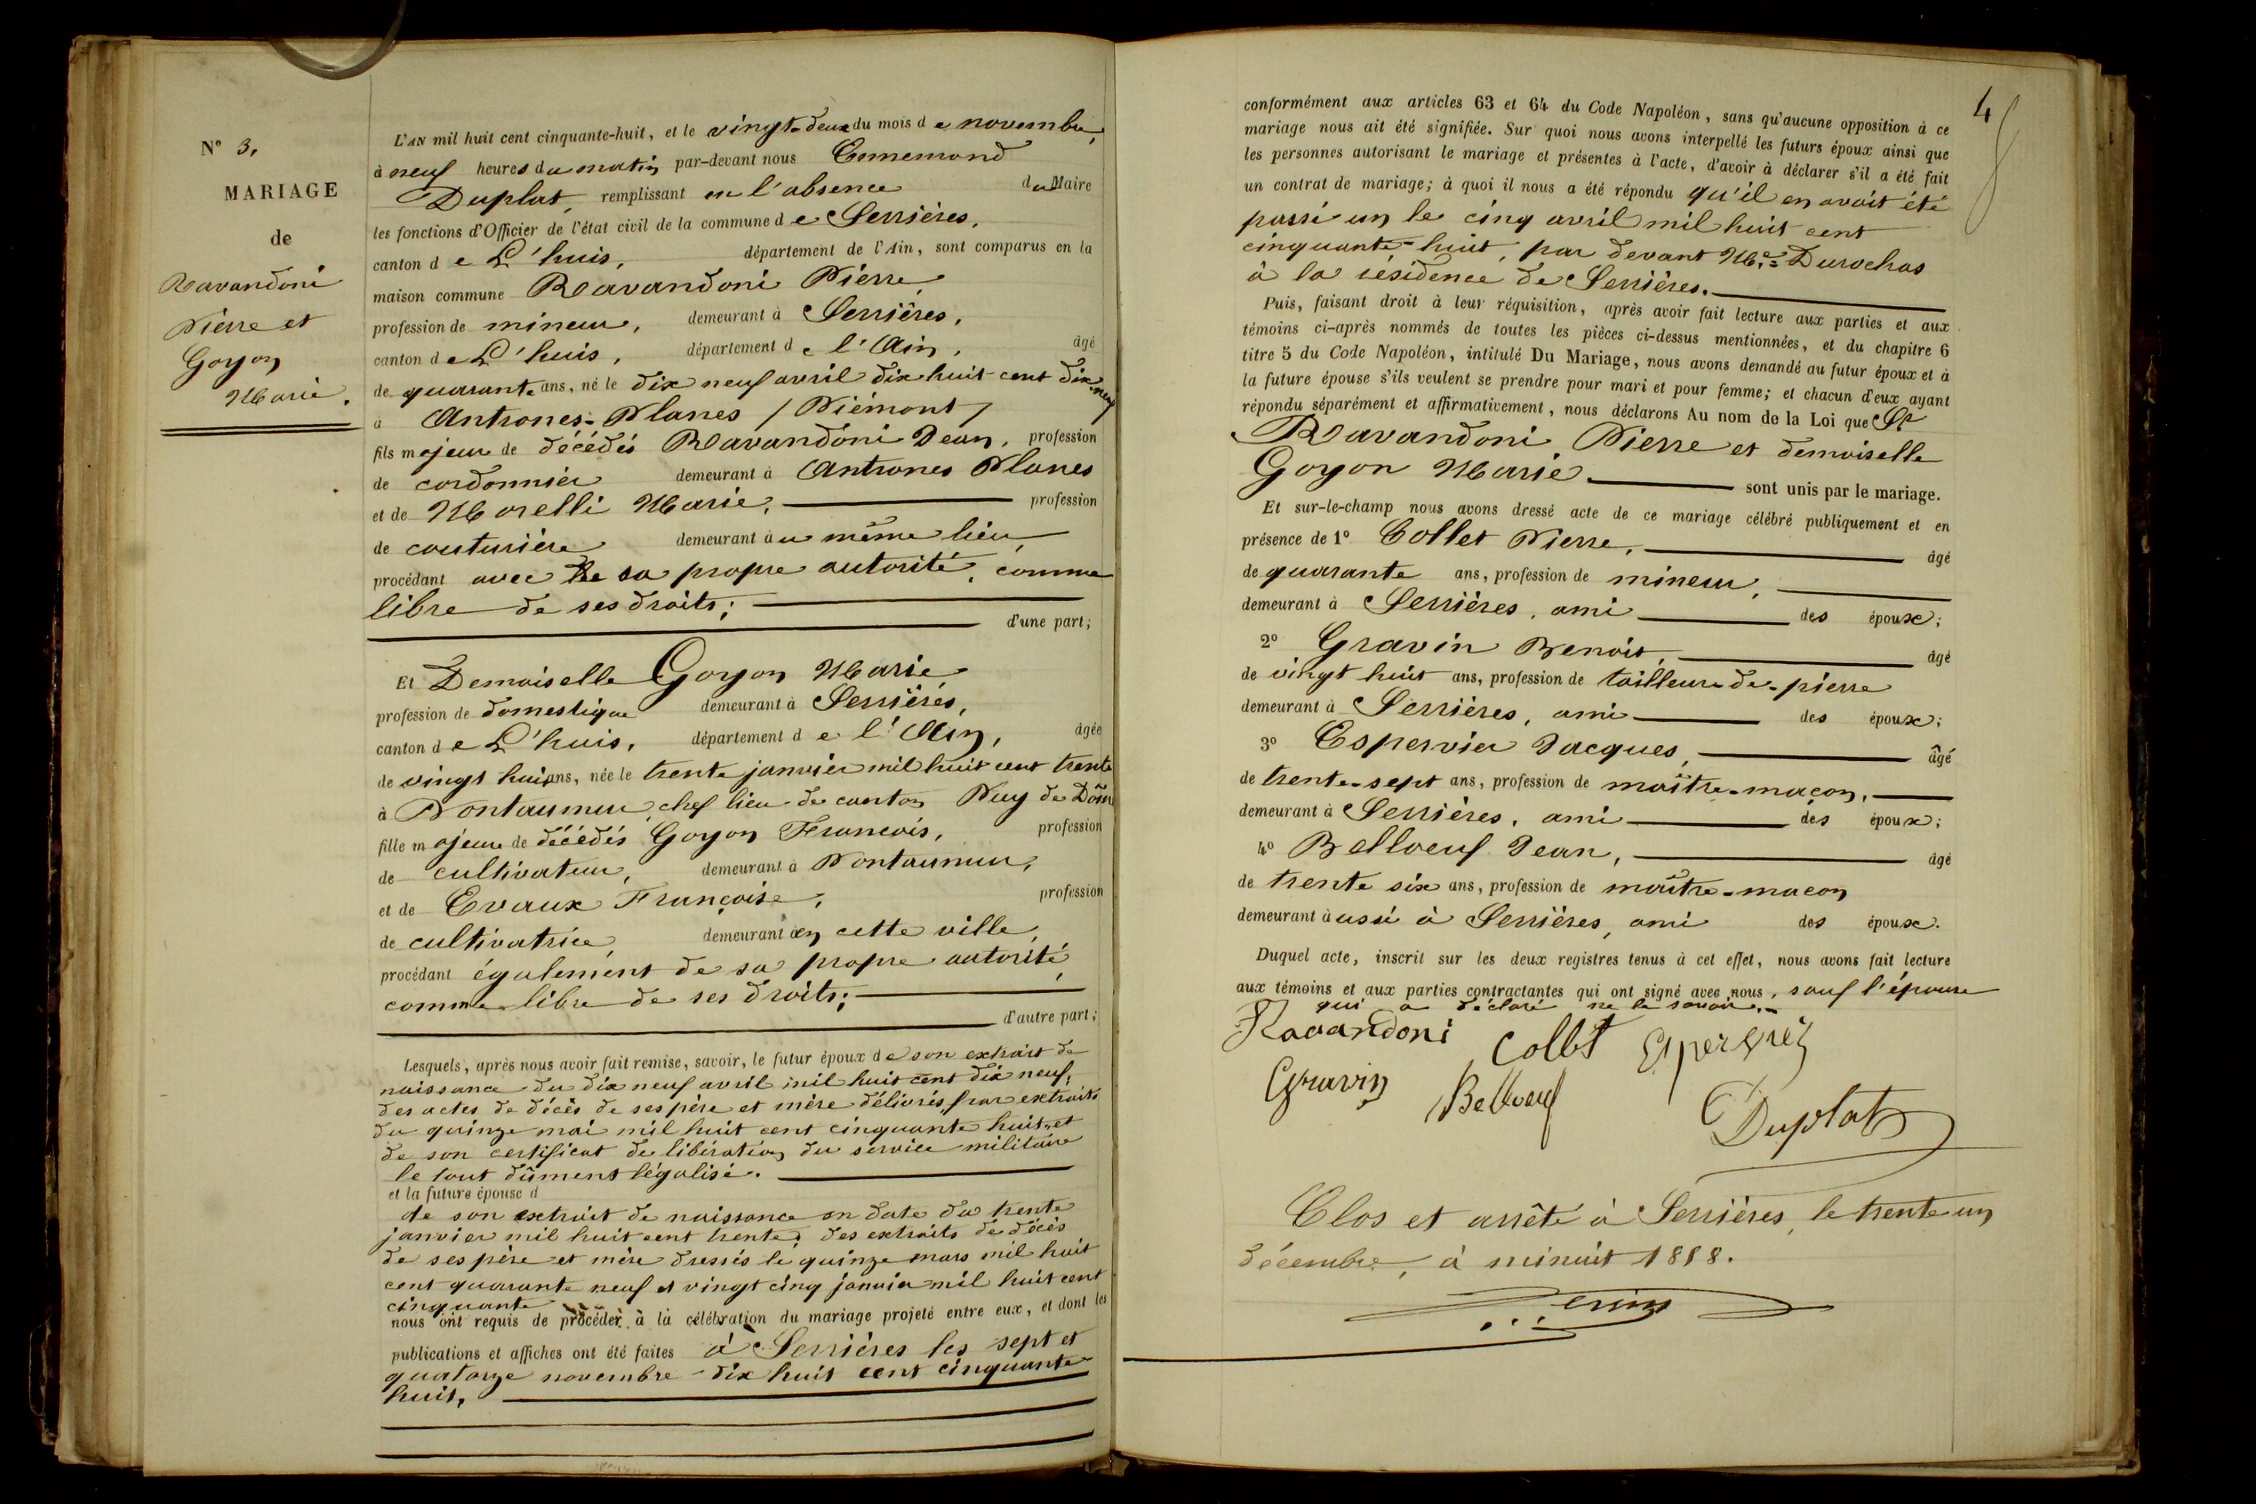 N° 3.
MARIAGE
de
Ravandoni
Pierre et
Goyon
Marie.
L'AN mil huit cent cinquante-huit, et le vingt-deux du mois de novembre,
à neuf heures du matin par-devant nous Ennemond
Duplat, remplissant en l'absence du Maire
les fonctions d'Officier de l'état civil de la commune de Serrières,
canton de L'huis, département de l'Ain, sont comparus en la
maison commune Ravandoni Pierre,
profession de mineur, demeurant à Serrières,
canton de L'huis, département de l'Ain, âgé
de quarante ans, né le dix neuf avril dix huit cent dix neuf
à Antrones-Planes / Piémont /
fils majeur de décédés Ravandoni Jean, profession
de cordonnier demeurant à Antrones Planes
et de Morelli Marie, profession
de couturière demeurant au même lieu,
procédant avec de sa propre autorité, comme
libre de ses droits;
d'une part;
Et Demoiselle Goyon Marie
profession de domestique demeurant à Serrières,
canton de L'huis, département de l'Ain, âgée
de vingt huit ans, née le trente janvier mil huit cent trente
à Pontaumur, chef lieu de canton Puy de Dôme
fille majeure de décédés Goyon François, profession
de cultivateur, demeurant à Pontaumur,
et de Evaux Françoise, profession
de cultivatrice demeurant en cette ville,
procédant également de sa propre autorité,
comme libre de ses droits;
d'autre part;
Lesquels, après nous avoir fait remise, savoir, le futur époux de son extrait de
naissance du dix neuf avril mil huit cent dix neuf,
des actes de décès de ses père et mère délivrés par extraits
du quinze mai mil huit cent cinquante huit et
de son certificat de libération du service militaire
le tout dûment légalisé.
et la future épouse d
de son extrait de naissance en date du trente
janvier mil huit cent trente, des extraits de décès
de ses père et mère dressés le quinze mars mil huit
cent quarante neuf et vingt cinq janvier mil huit cent
cinquante
nous ont requis de procéder à la célébration du mariage projeté entre eux, et dont les
publications et affiches ont été faites à Serrières les sept et
quatorze novembre dix huit cent cinquante
huit,
4
conformément aux articles 63 et 64 du Code Napoléon, sans qu'aucune opposition à ce
mariage nous ait été signifiée. Sur quoi nous avons interpellé les futurs époux ainsi que
les personnes autorisant le mariage et présentes à l'acte, d'avoir à déclarer s'il a été fait
un contrat de mariage; à quoi il nous a été répondu qu'il en avait été
passé un le cinq avril mil huit cent
cinquante-huit, par devant Me. Durochas
à la résidence de Serrières.
Puis, faisant droit à leur réquisition, après avoir fait lecture aux parties et aux
témoins ci-après nommés de toutes les pièces ci-dessus mentionnées, et du chapitre 6
titre 5 du Code Napoléon, intitulé Du Mariage, nous avons demandé au futur époux et à
la future épouse s'ils veulent se prendre pour mari et pour femme; et chacun d'eux ayant
répondu séparément et affirmativement, nous déclarons Au nom de la Loi que Sr
Ravandoni Pierre et demoiselle
Goyon Marie sont unis par le mariage.
Et sur-le-champ nous avons dressé acte de ce mariage célébré publiquement et en
présence de 1° Collet Pierre, âgé
de quarante ans, profession de mineur,
demeurant à Serrières, ami des époux;
2° Gravin Benoit, âgé
de vingt huit ans, profession de tailleur-de-pierre
demeurant à Serrières, ami des époux;
3° Espervier Jacques, âgé
de trente-sept ans, profession de maître-maçon,
demeurant à Serrières, ami des époux;
4° Belloeuf Jean, âgé
de trente six ans, profession de maître-macon
demeurant aussi à Serrières, ami des époux.
Duquel acte, inscrit sur les deux registres tenus à cet effet, nous avons fait lecture
aux témoins et aux parties contractantes qui ont signé avec nous, sauf l'épouse
qui a déclaré ne le savoir.
Ravandoni Collet
Gravin Belloeuf
Duplat
Clos et arrêté à Serrières, le trente un
décembre, à minuit 1858.